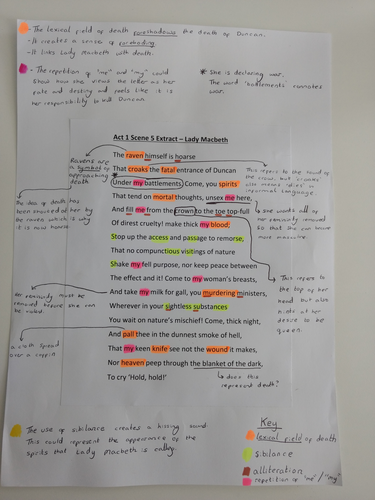 The lexical field of death foreshadows the death of Duncan.
- It creates a sense of foreboding
- It links Lady Macbeth with death.
- The repetition of 'me' and 'my' could
show how she views the letter as her
fate and destiny and feels like it is
her responsibility to kill Duncan.
* She is declaring war.
The word 'battlements' connotes
war.
Act 1 Scene 5 Extract – Lady Macbeth
Ravens are
a symbol of
approaching
death
The raven himself is hoarse
That croaks the fatal entrance of Duncan
Under my battlements. Come, you spirits
That tend on mortal thoughts, unsex me here,
And fill me from the crown to the toe top-full
Of direst cruelty! make thick my blood;
Stop up the access and passage to remorse,
That no compunctious visitings of nature
Shake my fell purpose, nor keep peace between
The effect and it! Come to my woman's breasts,
And take my milk for gall, you murdering ministers,
Wherever in your sightless substances
You wait on nature's mischief! Come, thick night,
And pall thee in the dunnest smoke of hell,
That my keen knife see not the wound it makes,
Nor heaven peep through the blanket of the dark,
To cry 'Hold, hold!'
This refers to the sound of
the crow, but 'croaks'
also means 'dies' in
informal language.
she wants all of
her femininity removed
so that she can become
more masculine.
The idea of death has
been smoked at her by
the raven which is why
it is now hoarse
This refers to
the top of her
head but also
hints at her
desire to be
queen.
Her femininity must be
removed before she can
be
a cloth spread
over a coffin
does this
represent death?
The use of sibilance creates a hissing sound.
This could represent the appearance of the
spirits that Lady Macbeth is calling.
Key
lexical field of death
sibilance
alliteration
repetition of 'me' / 'my'